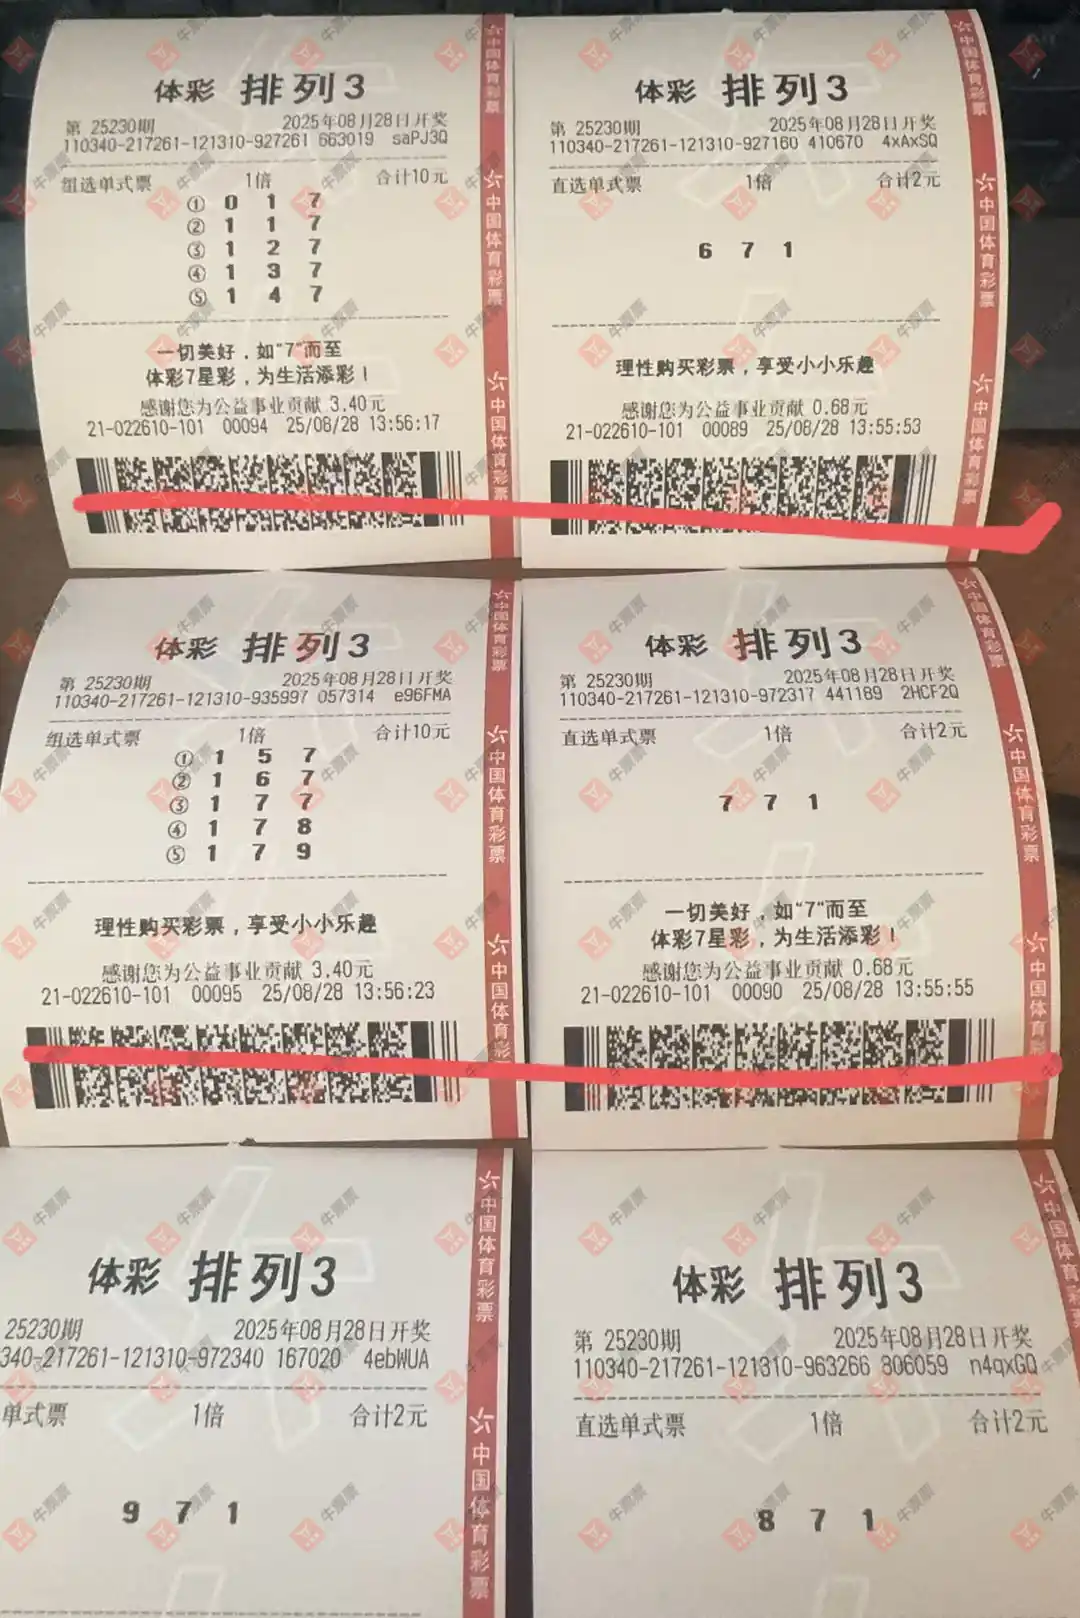 体彩 排列3
第 25230期 2025年08月28日开奖
110340-217261-121310-927261 663019 saPJ3Q
组选单式票 1倍 合计10元
① 0 1 7
② 1 1 7
③ 1 2 7
④ 1 3 7
⑤ 1 4 7
一切美好，如“7”而至
体彩7星彩，为生活添彩！
感谢您为公益事业贡献 3.40元
21-022610-101 00094 25/08/28 13:56:17
中国体育彩票
中国体育彩票
中国体育彩票
体彩 排列3
第 25230期 2025年08月28日开奖
110340-217261-121310-927160 410670 4xAxSQ
直选单式票 1倍 合计2元
6 7 1
理性购买彩票，享受小小乐趣
感谢您为公益事业贡献 0.68元
21-022610-101 00089 25/08/28 13:55:53
中国体育彩票
中国体育彩票
中国体育彩票
体彩 排列3
第 25230期 2025年08月28日开奖
110340-217261-121310-935997 057314 e96FMA
组选单式票 1倍 合计10元
① 1 5 7
② 1 6 7
③ 1 7 7
④ 1 7 8
⑤ 1 7 9
理性购买彩票，享受小小乐趣
感谢您为公益事业贡献 3.40元
21-022610-101 00095 25/08/28 13:56:23
中国体育彩票
中国体育彩票
中国体育彩
体彩 排列3
第 25230期 2025年08月28日开奖
110340-217261-121310-972317 441189 2HCF2Q
直选单式票 1倍 合计2元
7 7 1
一切美好，如“7”而至
体彩7星彩，为生活添彩！
感谢您为公益事业贡献 0.68元
21-022610-101 00090 25/08/28 13:55:55
中国体育彩票
中国体育彩票
中国体育彩
体彩 排列3
25230期 2025年08月28日开奖
340-217261-121310-972340 167020 4ebWUA
单式票 1倍 合计2元
9 7 1
中国体育彩票
中国体育彩票
体彩 排列3
第 25230期 2025年08月28日开奖
110340-217261-121310-963266 806059 n4qxGQ
直选单式票 1倍 合计2元
8 7 1
中国体育彩
牛票票